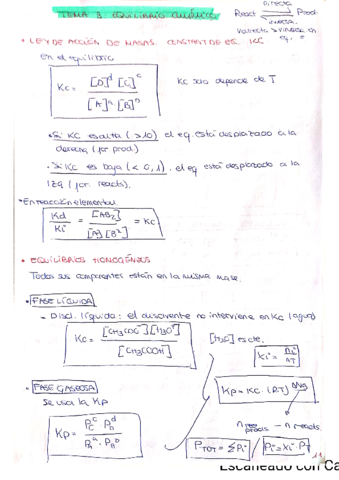 TEMA 3. EQUILIBRIO QUÍMICO
React ⇌ Prod.
directa
inversa
Vdirecta = Vinversa en eq.
• LEY DE ACCIÓN DE MASAS. CONSTANT DE EQ. KC
En el equilibrio
Kc = [D]^d [C]^c / [A]^a [B]^b
Kc solo depende de T
• Si KC es alta (>10) el eq. está desplazado a la
derecha (for prod)
• Si KC es baja (<0,1). el eq está desplazado a la
izq (for reacts).
• En reacción elemental
Kd / Ki = [AB2] / [A][B²] = Kc
• EQUILIBRIOS HOMOGÉNEOS
Todos sus componentes están en la misma fase.
• FASE LÍQUIDA
- Disol. líquida: el disolvente no interviene en Kc (agua)
Kc = [CH3COO⁻][H3O⁺] / [CH3COOH]
[H2O] es cte.
Xi = ni / nT
• FASE GASEOSA
Se usa la Kp
Kp = Kc · (RT)^Δng
Kp = Pc^c Pd^d / PA^a · PB^b
n prods - n reacts
PTOT = ΣPi
Pi = Xi · PT
Escaneado con Ca